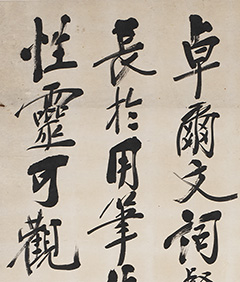 卓爾文詞
長於用筆
性靈可觀